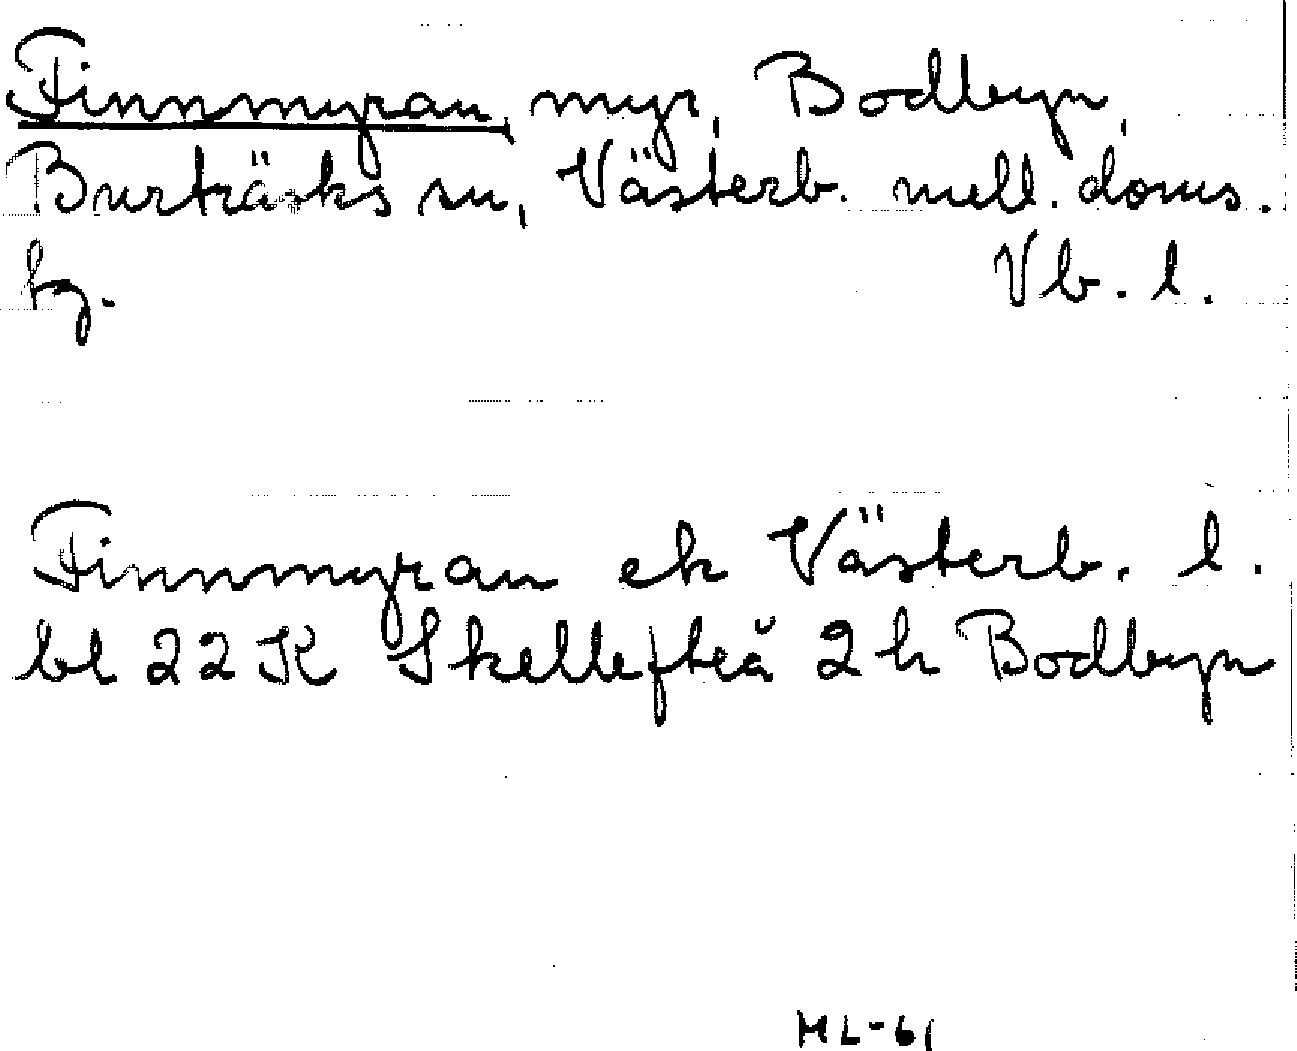 Finnmyran, myr, Bodbyn,
Burträsks sn, Västerb. mell. doms.
tg. Vb. l.
Finnmyran ek Västerb. l.
bl 22 K Skellefteå 2 h Bodbyn
ML-61